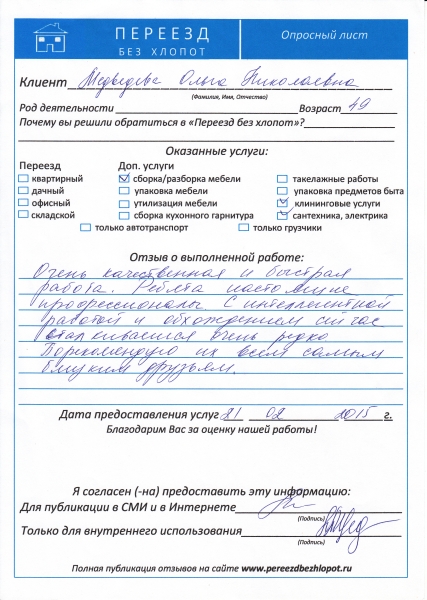 ПЕРЕЕЗД
БЕЗ ХЛОПОТ
Опросный лист
Клиент Медведева Ольга Николаевна
(Фамилия, Имя, Отчество)
Род деятельности Возраст 49
Почему вы решили обратиться в «Переезд без хлопот»?
Оказанные услуги:
Переезд Доп. услуги
квартирный сборка/разборка мебели такелажные работы
дачный упаковка мебели упаковка предметов быта
офисный утилизация мебели клининговые услуги
складской сборка кухонного гарнитура сантехника, электрика
только автотранспорт только грузчики
Отзыв о выполненной работе:
Очень качественная и быстрая
работа. Ребята настоящие
профессионалы. С интеллегентной
работой и обхождением сейчас
сталкиваешся очень редко
Порекомендую их всем самым
близким друзьям.
Дата предоставления услуг 21 02 2015 г.
Благодарим Вас за оценку нашей работы!
Я согласен (-на) предоставить эту информацию:
Для публикации в СМИ и в Интернете
(Подпись)
Только для внутреннего использования
(Подпись)
Полная публикация отзывов на сайте www.pereezdbezhlopot.ru